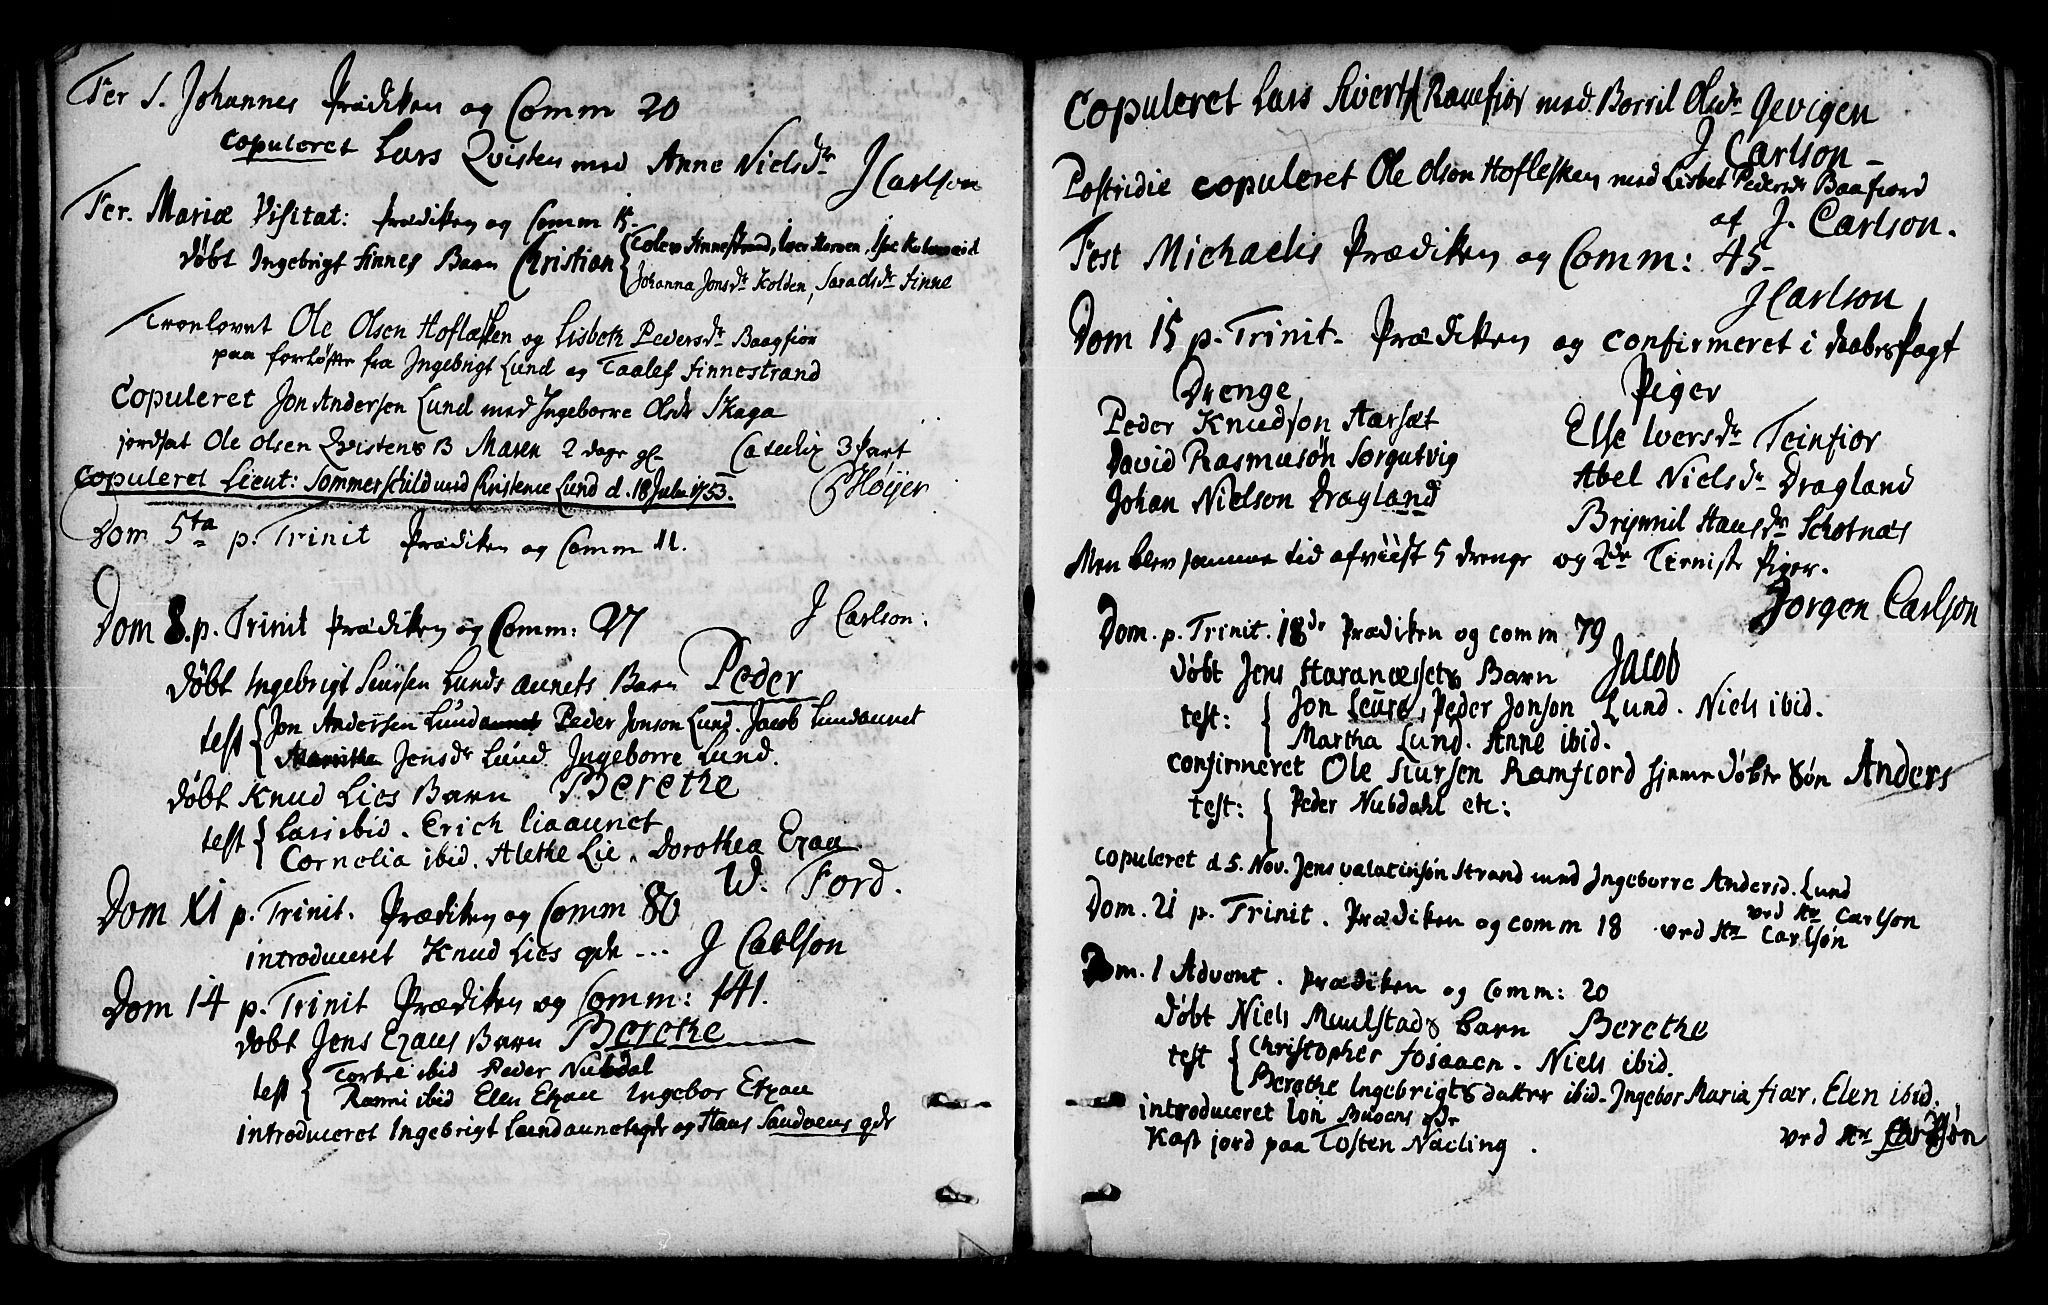 Fer S. Johannes Prædiken og Comm 20
copuleret Lars Qvisten med Anne Nielsdr
J Carlson
Fer. Mariæ Visitat: Prædiken og Comm 15
døbt Ingebrigt Finnes Barn Christian
Johanna Jonsdr Kolden, Finne
Troelovet Ole Olsen Hoflæsken og Lisbeth Pedersdr Baagfior
paa forløfte fra Ingebrigt Lund og Taalef Finnestrand
Copuleret Jon Andersen Lund med Ingeborre Olsdr Skaga
jordsat Ole Olsen Qvistens B Maren 2 dage gl. Catechiz 3 Part
Copuleret Lieut: Sommerschild med Christence Lund d. 18 Julii 1753.
P Høijer
Dom 5ta p. Trinit Prædiken og Comm 11.
J Carlson.
Dom 8. p. Trinit Prædiken og Comm: 97
døbt Ingebrigt Siursen Lunds aunets Barn Peder
test Jon Andersen Lund Peder Jonson Lund. Jacob Lundaunet
Jensdr Lund. Ingeborre Lund.
døbt Knud Lies Barn Berethe
test Lars ibid. Erich Liaaunet
Cornelia ibid. Alethe Lie. Dorothea Ezau
W. Ford.
Dom XI p. Trinit. Prædiken og Comm 80
introduceret Knud Lies qde ... J Carlson
Dom 14 p. Trinit Prædiken og Comm: 141.
døbt Jens Ezaus Barn Berethe
test Torkel ibid Peder Nubdal
Rasmi ibid Elen Ezau Ingebor Ezau
introduceret Ingebrigt Lundaunets qde og Hans Sandvens qde
Copuleret Lars Sivert Ramfior med Borril Olsdr Gevigen
J Carlson
Postridie copuleret Ole Olson Hoflesken med Lisbet Pedersdr Baafiord
af J. Carlson.
Fest Michaelis Prædiken og Comm: 45
J Carlson
Dom 15 p. Trinit. Prædiken og confirmeret i daabespagt
Drenge Piger
Peder Knudson Aarsæt Else Iversdr Teinfior
David Rasmusøn Sørgutvig Abel Nielsdr Dragland
Johan Nielson Dragland Hansdr Schotnæs
Men blev samme tid afviist 5 drenge og 2de Tieniste Piger.
Jorgen Carlson
Dom. p. Trinit. 18de Prædiken og comm 79
døbt Jens Haranæssets Barn Jacob
test: Jon Peder Jonson Lund. Niels ibid.
Martha Lund. Anne ibid.
confirmeret Ole Siursen Ramfiord hjemedøbte Søn Anders
test: Peder Nubdahl etc:
copuleret d. 5. Nov. Jens valatinsøn Strand med Ingeborre Andersd. Lund
ved Hr Carlson
Dom. 21 p. Trinit. Prædiken og comm 18 ved Hr Carlsøn
Dom. 1 Advent. Prædiken og Comm: 20
døbt Niels Muulstads barn Berethe
test Christopher Fosaaen. Niels ibid.
Berethe Ingebrigts datter ibid. Ingebor Maria fiær. Elen ibid.
introduceret Buvens qde
Kast jord paa Tosten Næling. ved Hr Carlsøn